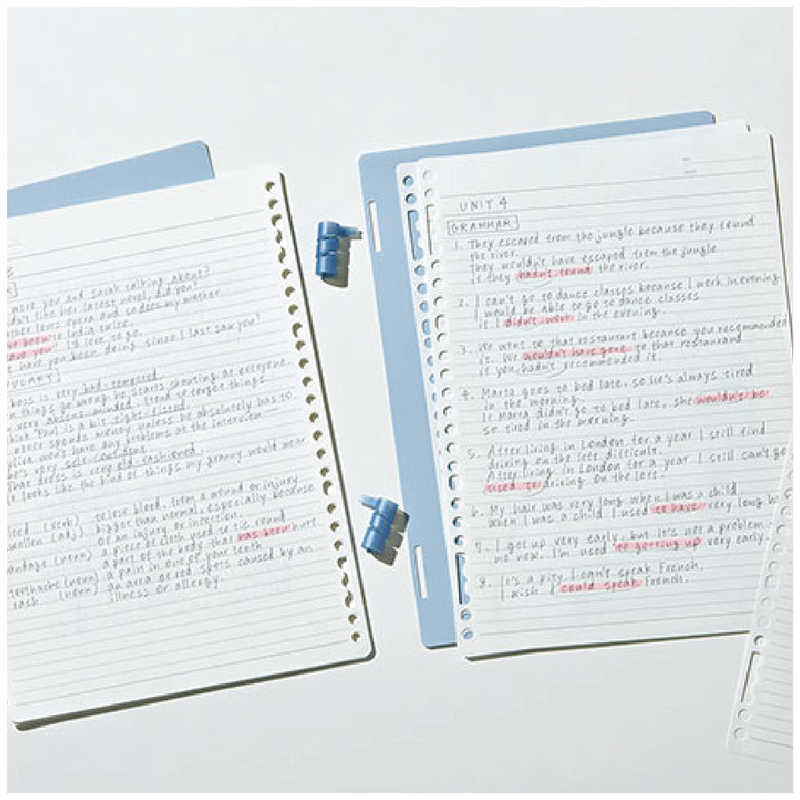 more you and sarah talking about?
didn't like her latest novel, did you?
mother loves opera and so does my mother.
been to India twice.
have you? I'd love to go.
have you been doing since I last saw you?
boss is very bad-tempered.
things go wrong he starts shouting at everyone.
very absent-minded. I tend to forget things.
Paul is a bit tight-fisted.
never spends money unless he absolutely has to
won't have any problems at the interview
very self-confident.
That dress is very old-fashioned.
It looks like the kind of things my granny would wear
(verb) to lose blood, from a wound or injury
swollen (adj) bigger than normal, especially because
of an injury or infection.
bandage (noun) a piece of cloth used to tie round
a part of the body that has been hurt.
toothache (noun) a pain in one of your teeth
rash (noun) an area of red spots caused by an
illness or allergy.
UNIT 4
GRAMMAR
1. They escaped from the jungle because they found
the river.
They wouldn't have escaped from the jungle
if they hadn't found the river.
2. I can't go to dance classes because I work in evening.
I would be able to go to dance classes
if I didn't work in the evening.
3. We went to that restaurant because you recommended
it. We wouldn't have gone to that restaurant
if you hadn't recommended it.
4. Marta goes to bed late, so she's always tired
in the morning.
If Marta didn't go to bed late, she wouldn't be
so tired in the morning.
5. After living in London for a year I still find
driving on the left difficult.
After living in London for a year I still can't get
used to driving on the left.
6. My hair was very long when I was a child
When I was a child I used to have very long
7. I get up very early, but it's not a problem
me now. I'm used to getting up very early.
8. It's a pity I can't speak French.
I wish I could speak French.